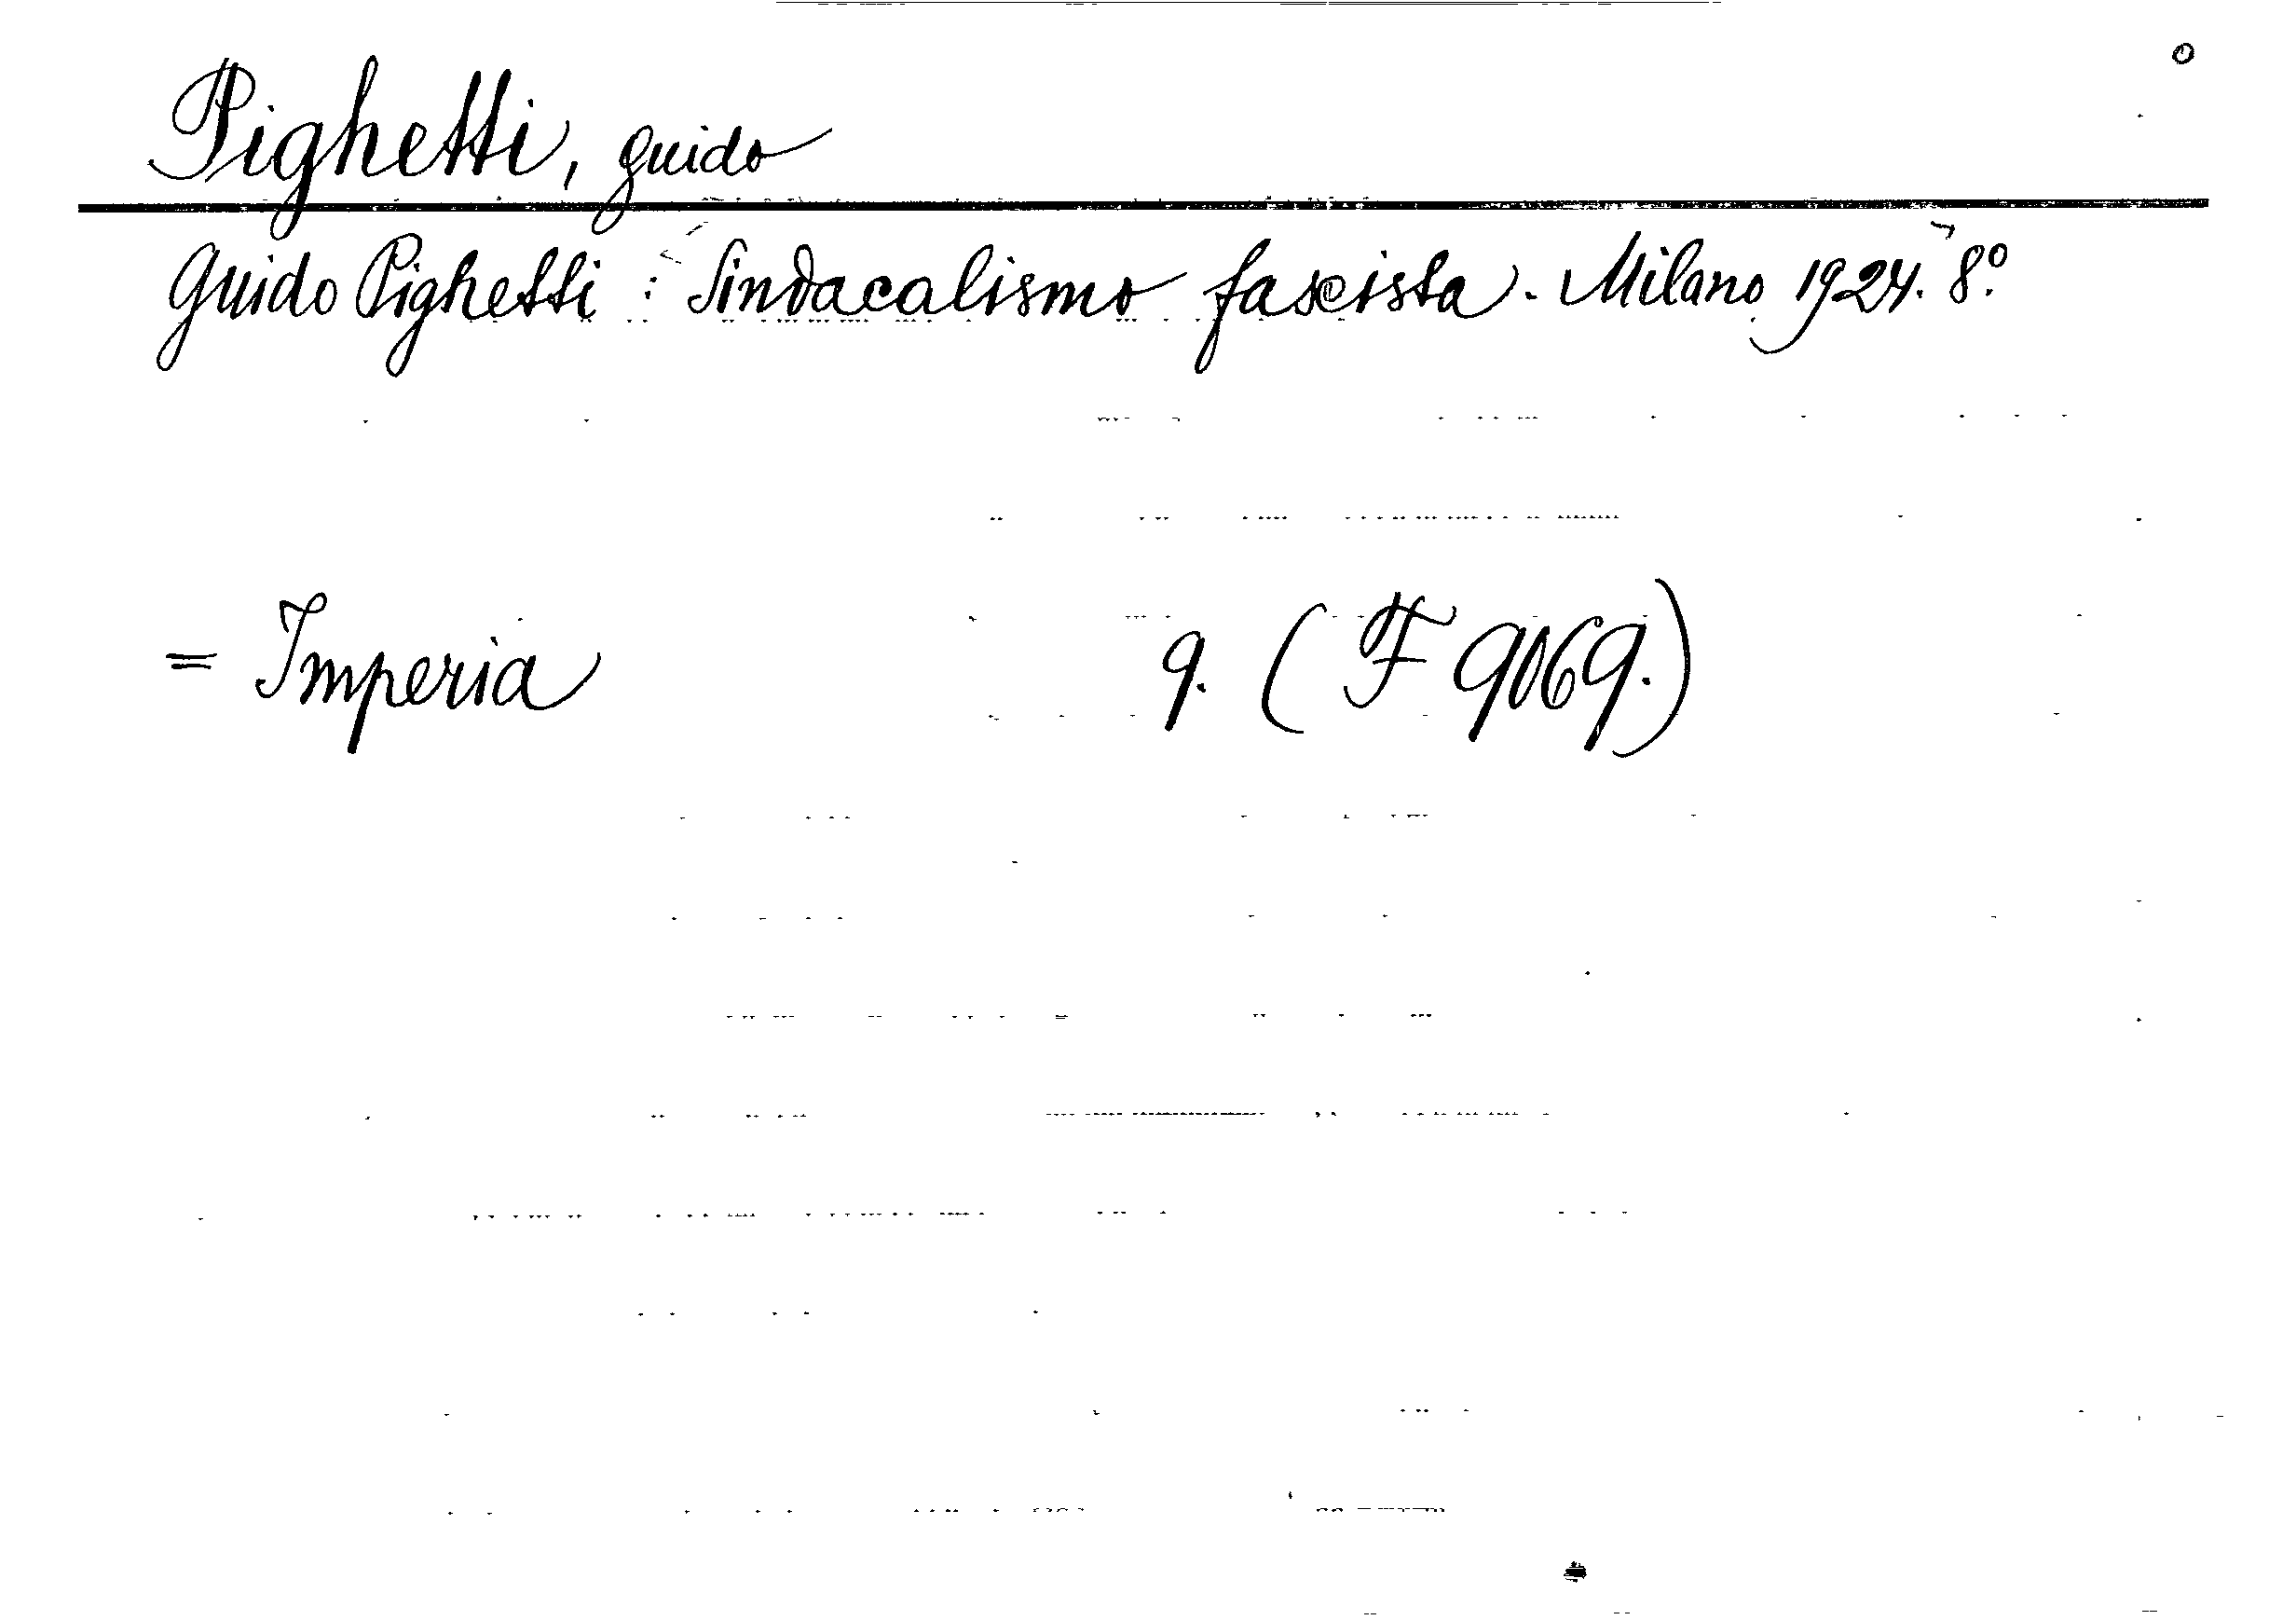 Pighetti, Guido
Guido Pighetti : Sindacalismo fascista. Milano 1924. 8.º
= Imperia 9. (F 9069.)